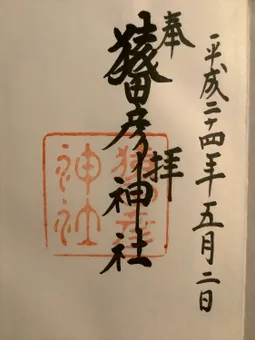 平成二十四年五月二日
奉拝
猿田彦神社
猿田彦神社